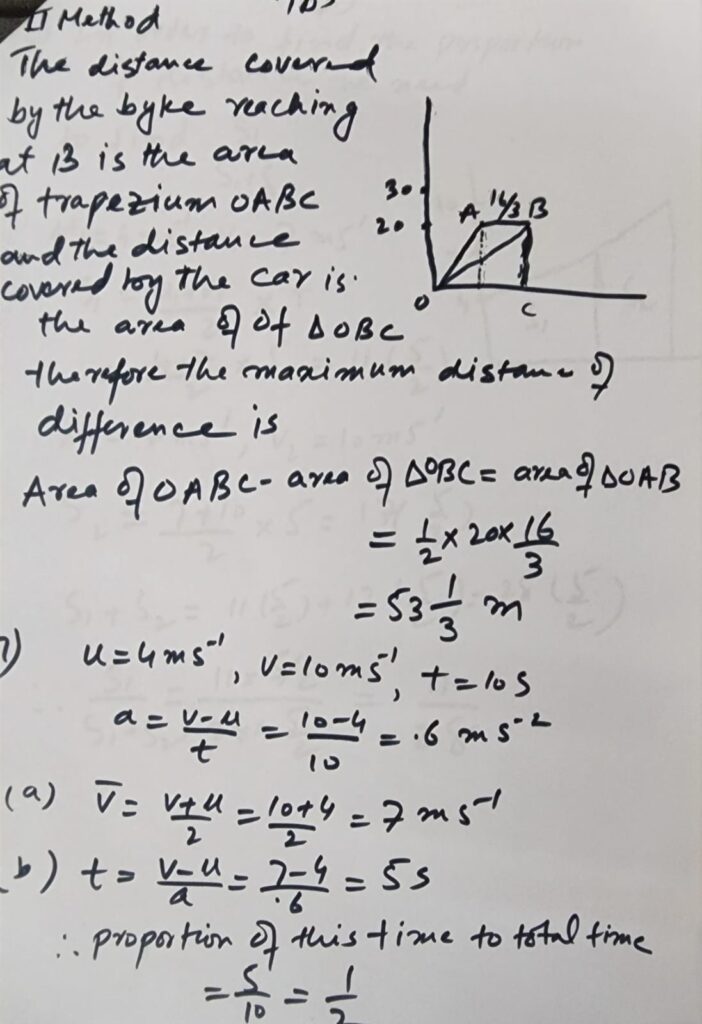 II Method
The distance covered
by the byke reaching
at B is the area
of trapezium OABC
and the distance
covered by the car is.
the area of of ΔOBC
therefore the maximum distance of
difference is
30
20
A 16/3 B
O
C
Area of OABC - area of ΔOBC = area of ΔOAB
= 1/2 × 20 × 16/3
= 53 1/3 m
7) u = 4 ms⁻¹, v = 10 ms⁻¹, t = 10 s
a = (v-u)/t = (10-4)/10 = .6 m s⁻²
(a) v̄ = (v+u)/2 = (10+4)/2 = 7 m s⁻¹
b) t = (v-u)/a = (7-4)/.6 = 5 s
∴ proportion of this time to total time
= 5/10 = 1/2